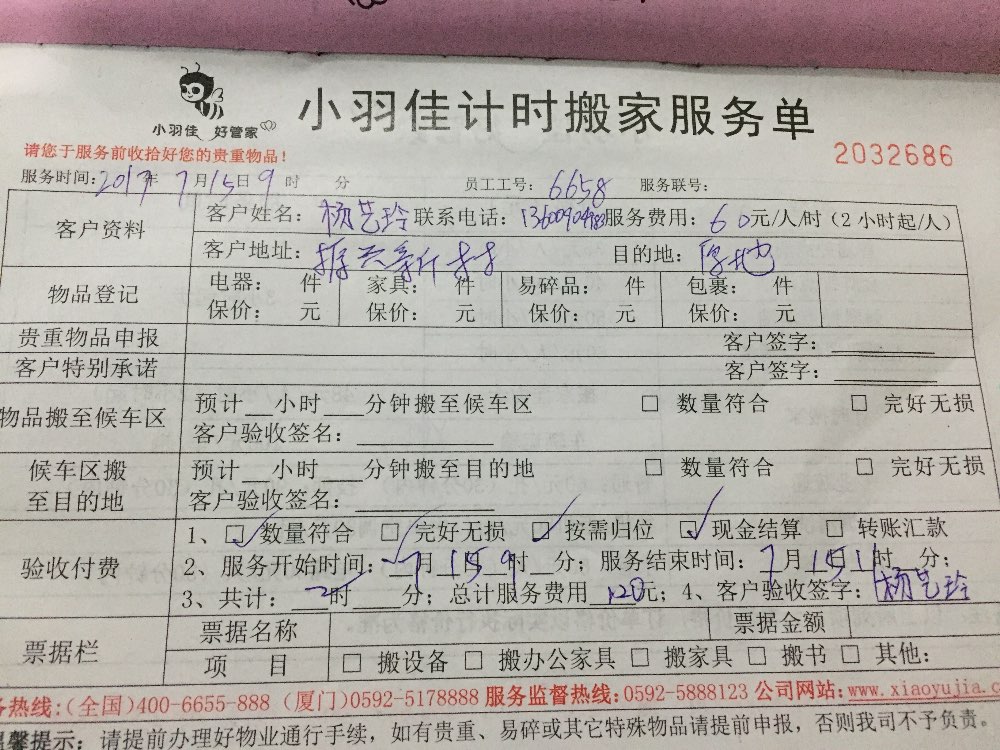 小羽佳 好管家
小羽佳计时搬家服务单
2032686
请您于服务前收拾好您的贵重物品！
服务时间：2017年 7月15日9时 分 员工工号：6658 服务联号：
客户资料 客户姓名：杨艺玲 联系电话： 服务费用：60元/人/时（2小时起/人）
客户地址：振兴新村 目的地：厚地
物品登记 电器： 件 家具： 件 易碎品： 件 包裹： 件
保价： 元 保价： 元 保价： 元 保价： 元
贵重物品申报 客户签字：
客户特别承诺 客户签字：
物品搬至候车区 预计 小时 分钟搬至候车区 □ 数量符合 □ 完好无损
客户验收签名：
候车区搬至目的地 预计 小时 分钟搬至目的地 □ 数量符合 □ 完好无损
客户验收签名：
验收付费 1、☑数量符合 ☑完好无损 ☑按需归位 ☑现金结算 □ 转账汇款
2、服务开始时间：7月15 9时 分；服务结束时间：7月15日11时 分；
3、共计：2时 分；总计服务费用120元；4、客户验收签字：杨艺玲
票据栏 票据名称 票据金额
项 目 □ 搬设备 □ 搬办公家具 □ 搬家具 □ 搬书 □ 其他：
务热线：（全国）400-6655-888（厦门）0592-5178888 服务监督热线：0592-5888123 公司网站：www.xiaoyujia.c
馨提示：请提前办理好物业通行手续，如有贵重、易碎或其它特殊物品请提前申报，否则我司不予负责。